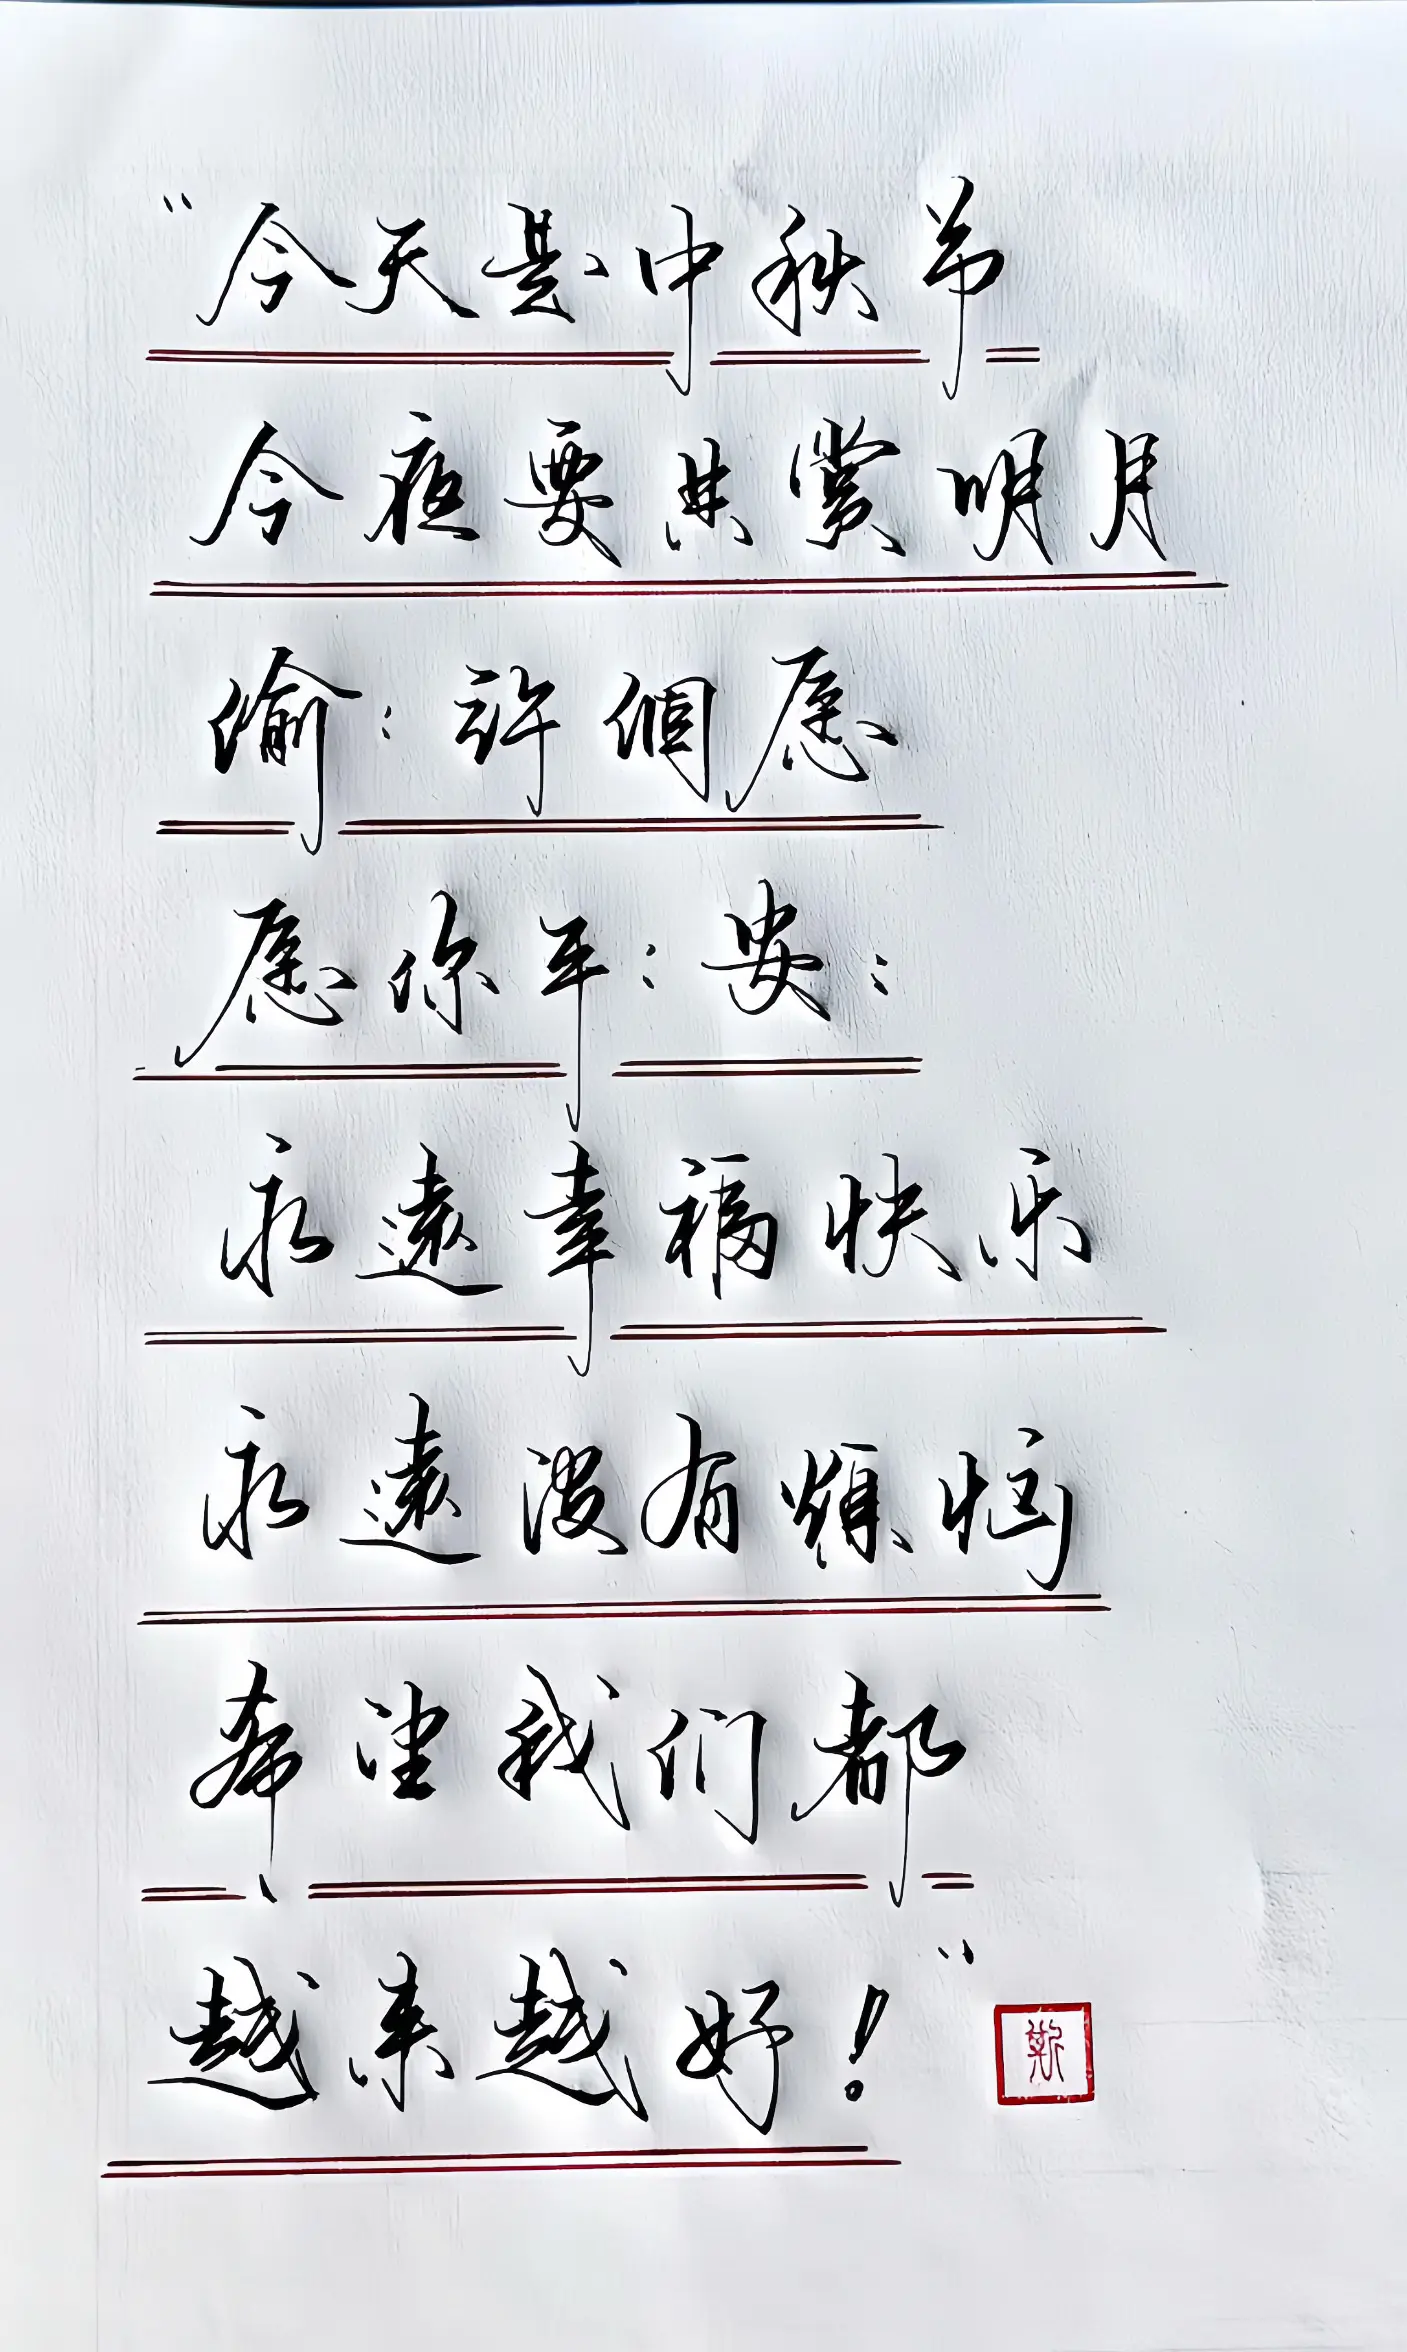 “今天是中秋节
今夜要共赏明月
偷:許個愿
愿你平:安:
永遠幸福快乐
永遠没有煩恼
希望我们都
越来越好!”
斯